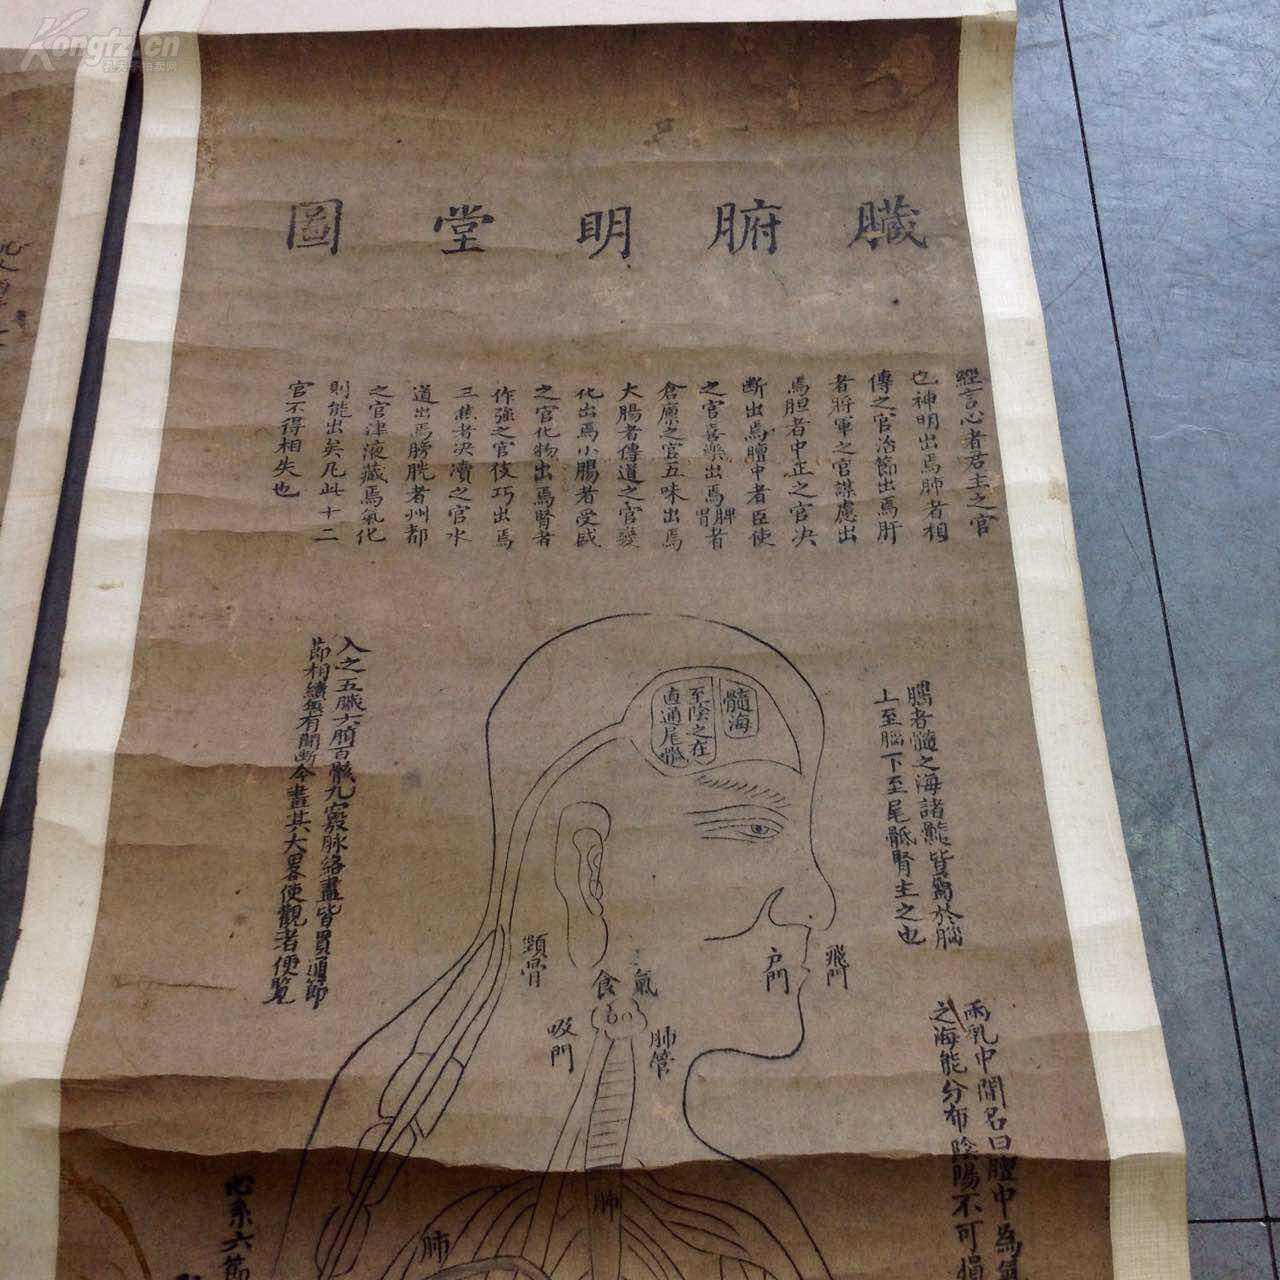 Kongfz.cn
臟腑明堂圖
經言心者君主之官
也神明出焉肺者相
傳之官治節出焉肝
者將軍之官謀慮出
焉胆者中正之官决
斷出焉膻中者臣使
之官喜樂出焉脾胃者
倉廪之官五味出焉
大腸者傳道之官變
化出焉小腸者受盛
之官化物出焉腎者
作强之官伎巧出焉
三焦者决瀆之官水
道出焉膀胱者州都
之官津液藏焉氣化
則能出矣凡此十二
官不得相失也
腦者髓之海諸髓皆屬於腦
上至腦下至尾骶腎主之也
髓海
至陰之在
直通尾骶
人之五臟六腑百骸九竅脉絡盡皆貫通節
節相續無有間断今畫其大畧使觀者便覧
飛門
户門
顖骨
食
氣
吸門
肺管
兩乳中間名曰膻中為氣
之海能分布陰陽不可損
肺
肺
心系六節